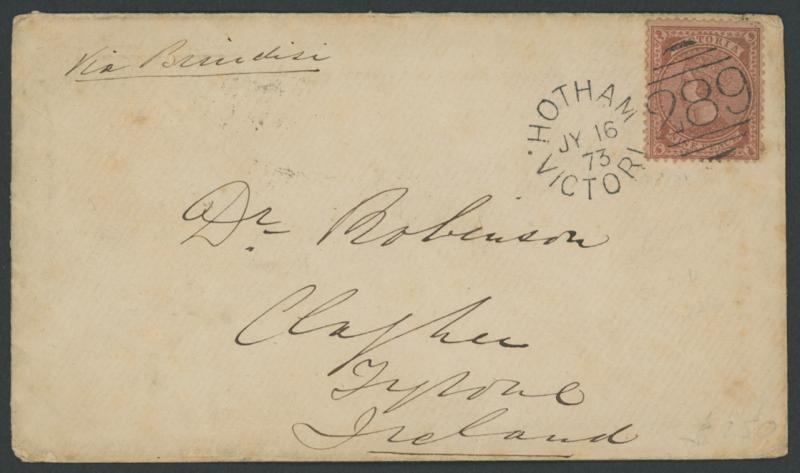 Via Brindisi
VICTORIA
289
HOTHAM
JY 16
73
VICTORI
Dr. Robinson
Clogher
Tyrone
Ireland